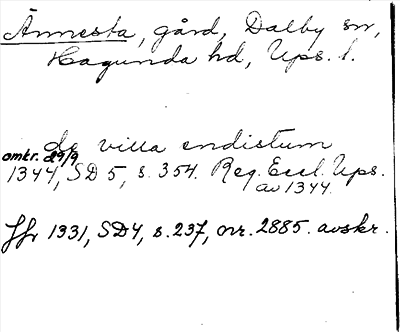 Ännesta, gård, Dalby sn,
Hagunda hd, Ups. l.
de villa endistum
omkr. 29/9
1344, SD 5, s. 354. Reg. Eccl. Ups.
av 1344.
Jfr 1331, SD4, s. 237, nr. 2885. avskr.